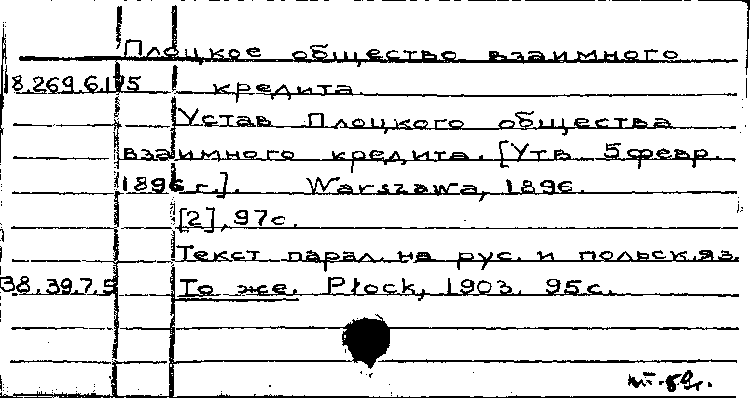 Плоцкое общество взаимного
18.269.6.175 кредита.
Устав Плоцкого общества
взаимного кредита. [Утв. 5 февр.
1896 г.]. Warszawa, 1896.
[2], 97с.
Текст парал. на рус. и польск. яз.
38.39.7.5 То же. Płock, 1903. 95с.